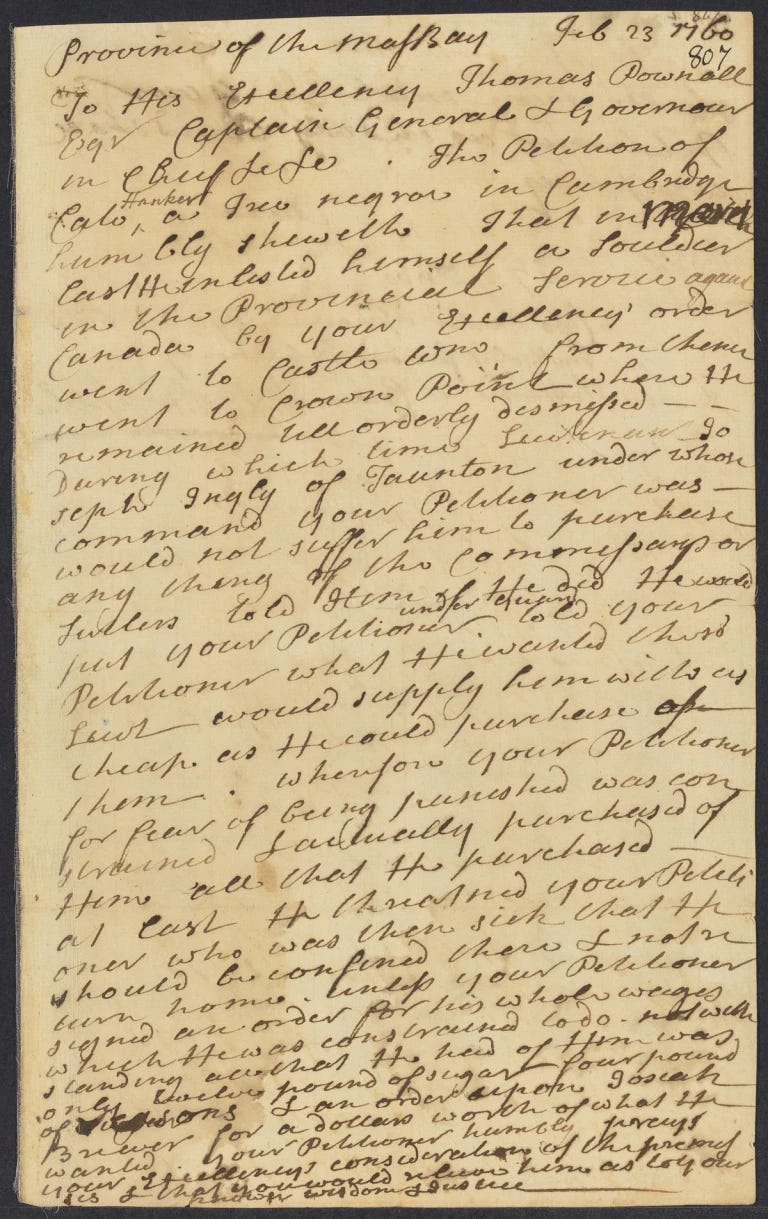 Province of the MassBay Feb 23 1760
807
To His Excellency Thomas Pownall
Esqr Captain General & Governour
in Chief &c &c . The Petition of
Hanker
Cato ^ a Free negroe in Cambridge
humbly sheweth That in March
last He inlisted himself a Souldier
in the Provincial Service against
Canada by your Excellency' order
went to Castle Wm from thence
went to Crown Point where He
remained till orderly dismissed — —
During which time Lieutenant Jo
seph Ingly of Taunton under whose
command your Petitioner was —
would not suffer him to purchase
any thing of the Commissary or
Sutlers told Him if He did He would
under Guard
put your Petitioner told your
Petitioner what He wanted
Lieut would supply him with as
cheap as He could purchase
them . wherefore your Petitioner
for fear of being punished was con
strained & actually purchased of
Him all that He purchased —
at last He threatned your Petiti
oner who was then sick that He
should be confined there & not re
turn home unless your Petitioner
signed an order for his whole wages
which He was constrained to do. notwith
standing all that He had of Him was
only twelve pound of sugar four pound
of & an order upon Josiah
Brewer for a dollars worth of what He
wanted your Petitioner humbly prays
your Excellency's consideration of the premis
ses & that you would relieve him as to your
known wisdom & Justice